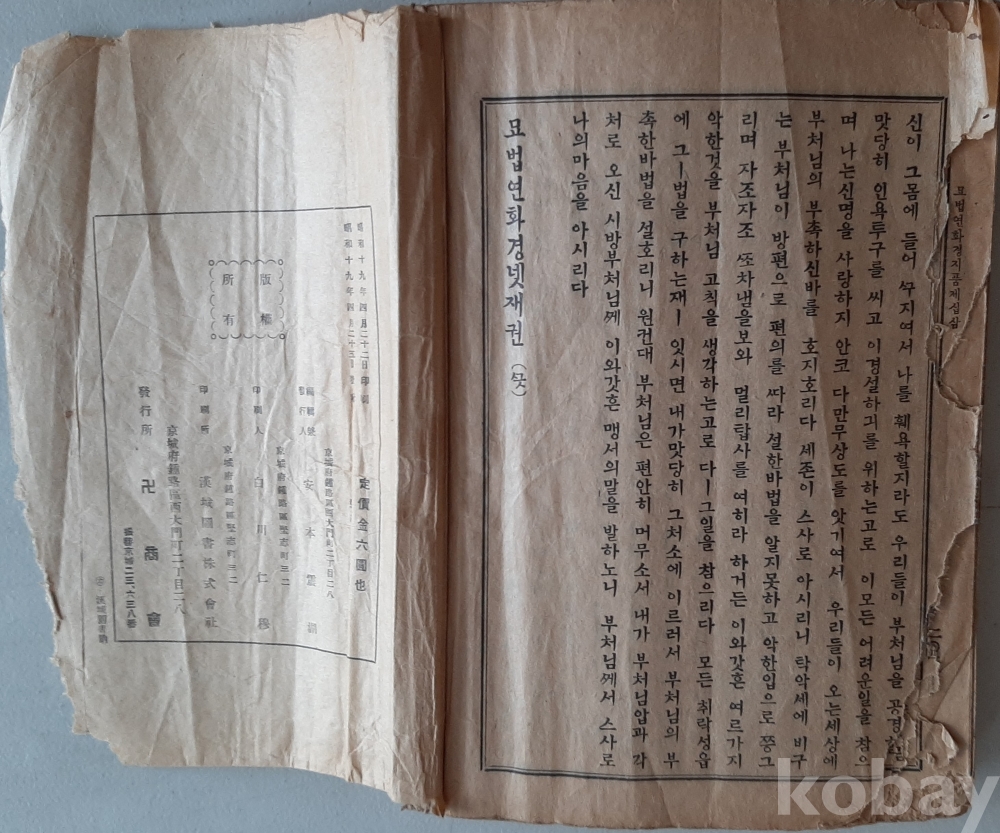 묘법연화경지픔제십삼
신이 그몸에 들어 우리를 훼욕할지라도 우리들이 부처님을 공경
맛당히 인욕투구를 씨고 이경설하기를 위하는고로 이모든 어려운일을 참으
며 나는신명을 사랑하지 안코 다만무상도를 앗기여서 우리들이 오는세상에
부처님의 부촉하신바를 호지호리다 세존이 스사로 아시리니 탁악세에 비구
는 부처님이 방편으로 편의를 따라 설한바법을 알지못하고 악한입으로 쯩그
리며 자조자조 ᄶᅩ차냄을보와 멀리탑사를 여히라 하거든 이와갓흔 여르가지
악한것을 부처님 고칙을 생각하는고로 다ㅣ그일을 참으리다 모든 취락성읍
에 그ㅣ법을 구하는재ㅣ 잇시면 내가맛당히 그처소에 이르러서 부처님의 부
촉한바법을 설호리니 원컨대 부처님은 편안히 머무소서 내가 부처님압과 각
처로 오신 시방부처님ᄭᅦ 이와갓흔 맹서의말을 발하노니 부처님ᄭᅦ서 스사로
나의마음을 아시리다
묘법연화경넷재권 (ᄭᅳᆺ)
昭和十九年四月二十二日印刷
昭和十九年四月二十五日
版權
所有
定價金六圓也
京城府鍾路區西大門町二丁目二八
發行人 安本震湖
京城府鍾路區堅志町三二
印刷人 白川仁
京城府鍾路區堅志町三二
印刷所 漢城圖書株式會社
京城府鍾路區西大門町二丁目二八
發行所 卍商會
振替京城二三、六三八番